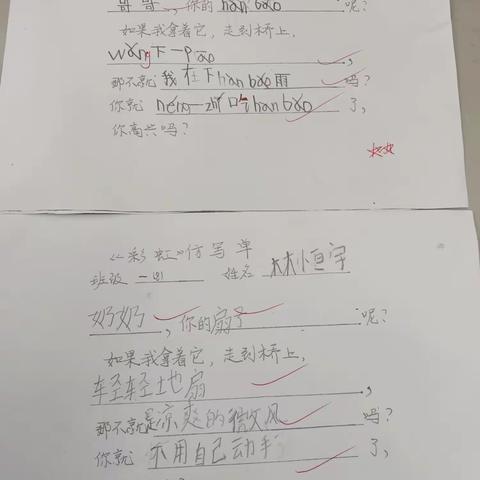 哥哥，你的hàn bǎo呢？
如果我拿着它，走到桥上，
wǎng下一pāo，
那不就我在下hàn bǎo雨吗？
你就néng一zhí吃hàn bǎo了，
你高兴吗？
《彩虹》仿写单
班级 一(8) 姓名 林恒宇
奶奶，你的扇子呢？
如果我拿着它，走到桥上，
轻轻地扇，
那不就是凉爽的微风吗？
你就不用自己动手了，